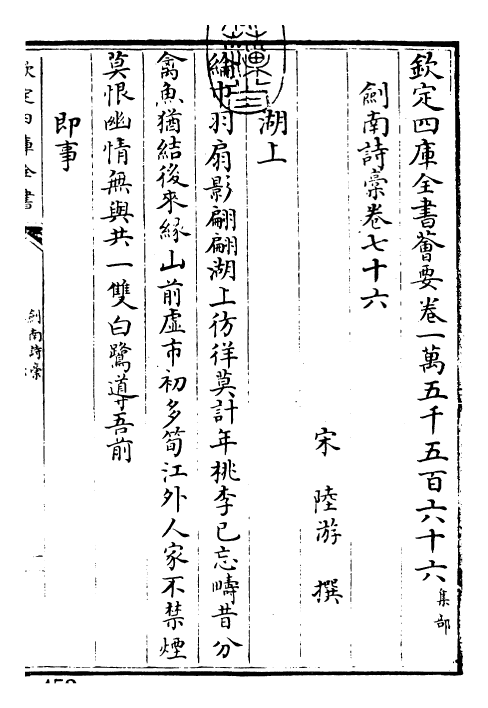 欽定四庫全書薈要卷一萬五千五百六十六集部
劍南詩稾卷七十六
宋陸游撰
湖上
綸巾羽扇影翩翩湖上彷徉莫計年桃李已忘疇昔分
禽魚猶結後來緣山前虛市初多筍江外人家不禁煙
莫恨幽情無與共一雙白鷺導吾前
即事
欽定四庫全書
劍南詩稾